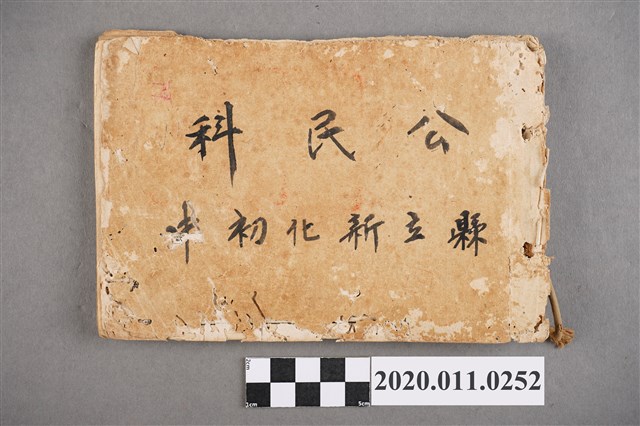 公民科
縣立新化初中
2020.011.0252
2cm
1cm
5cm